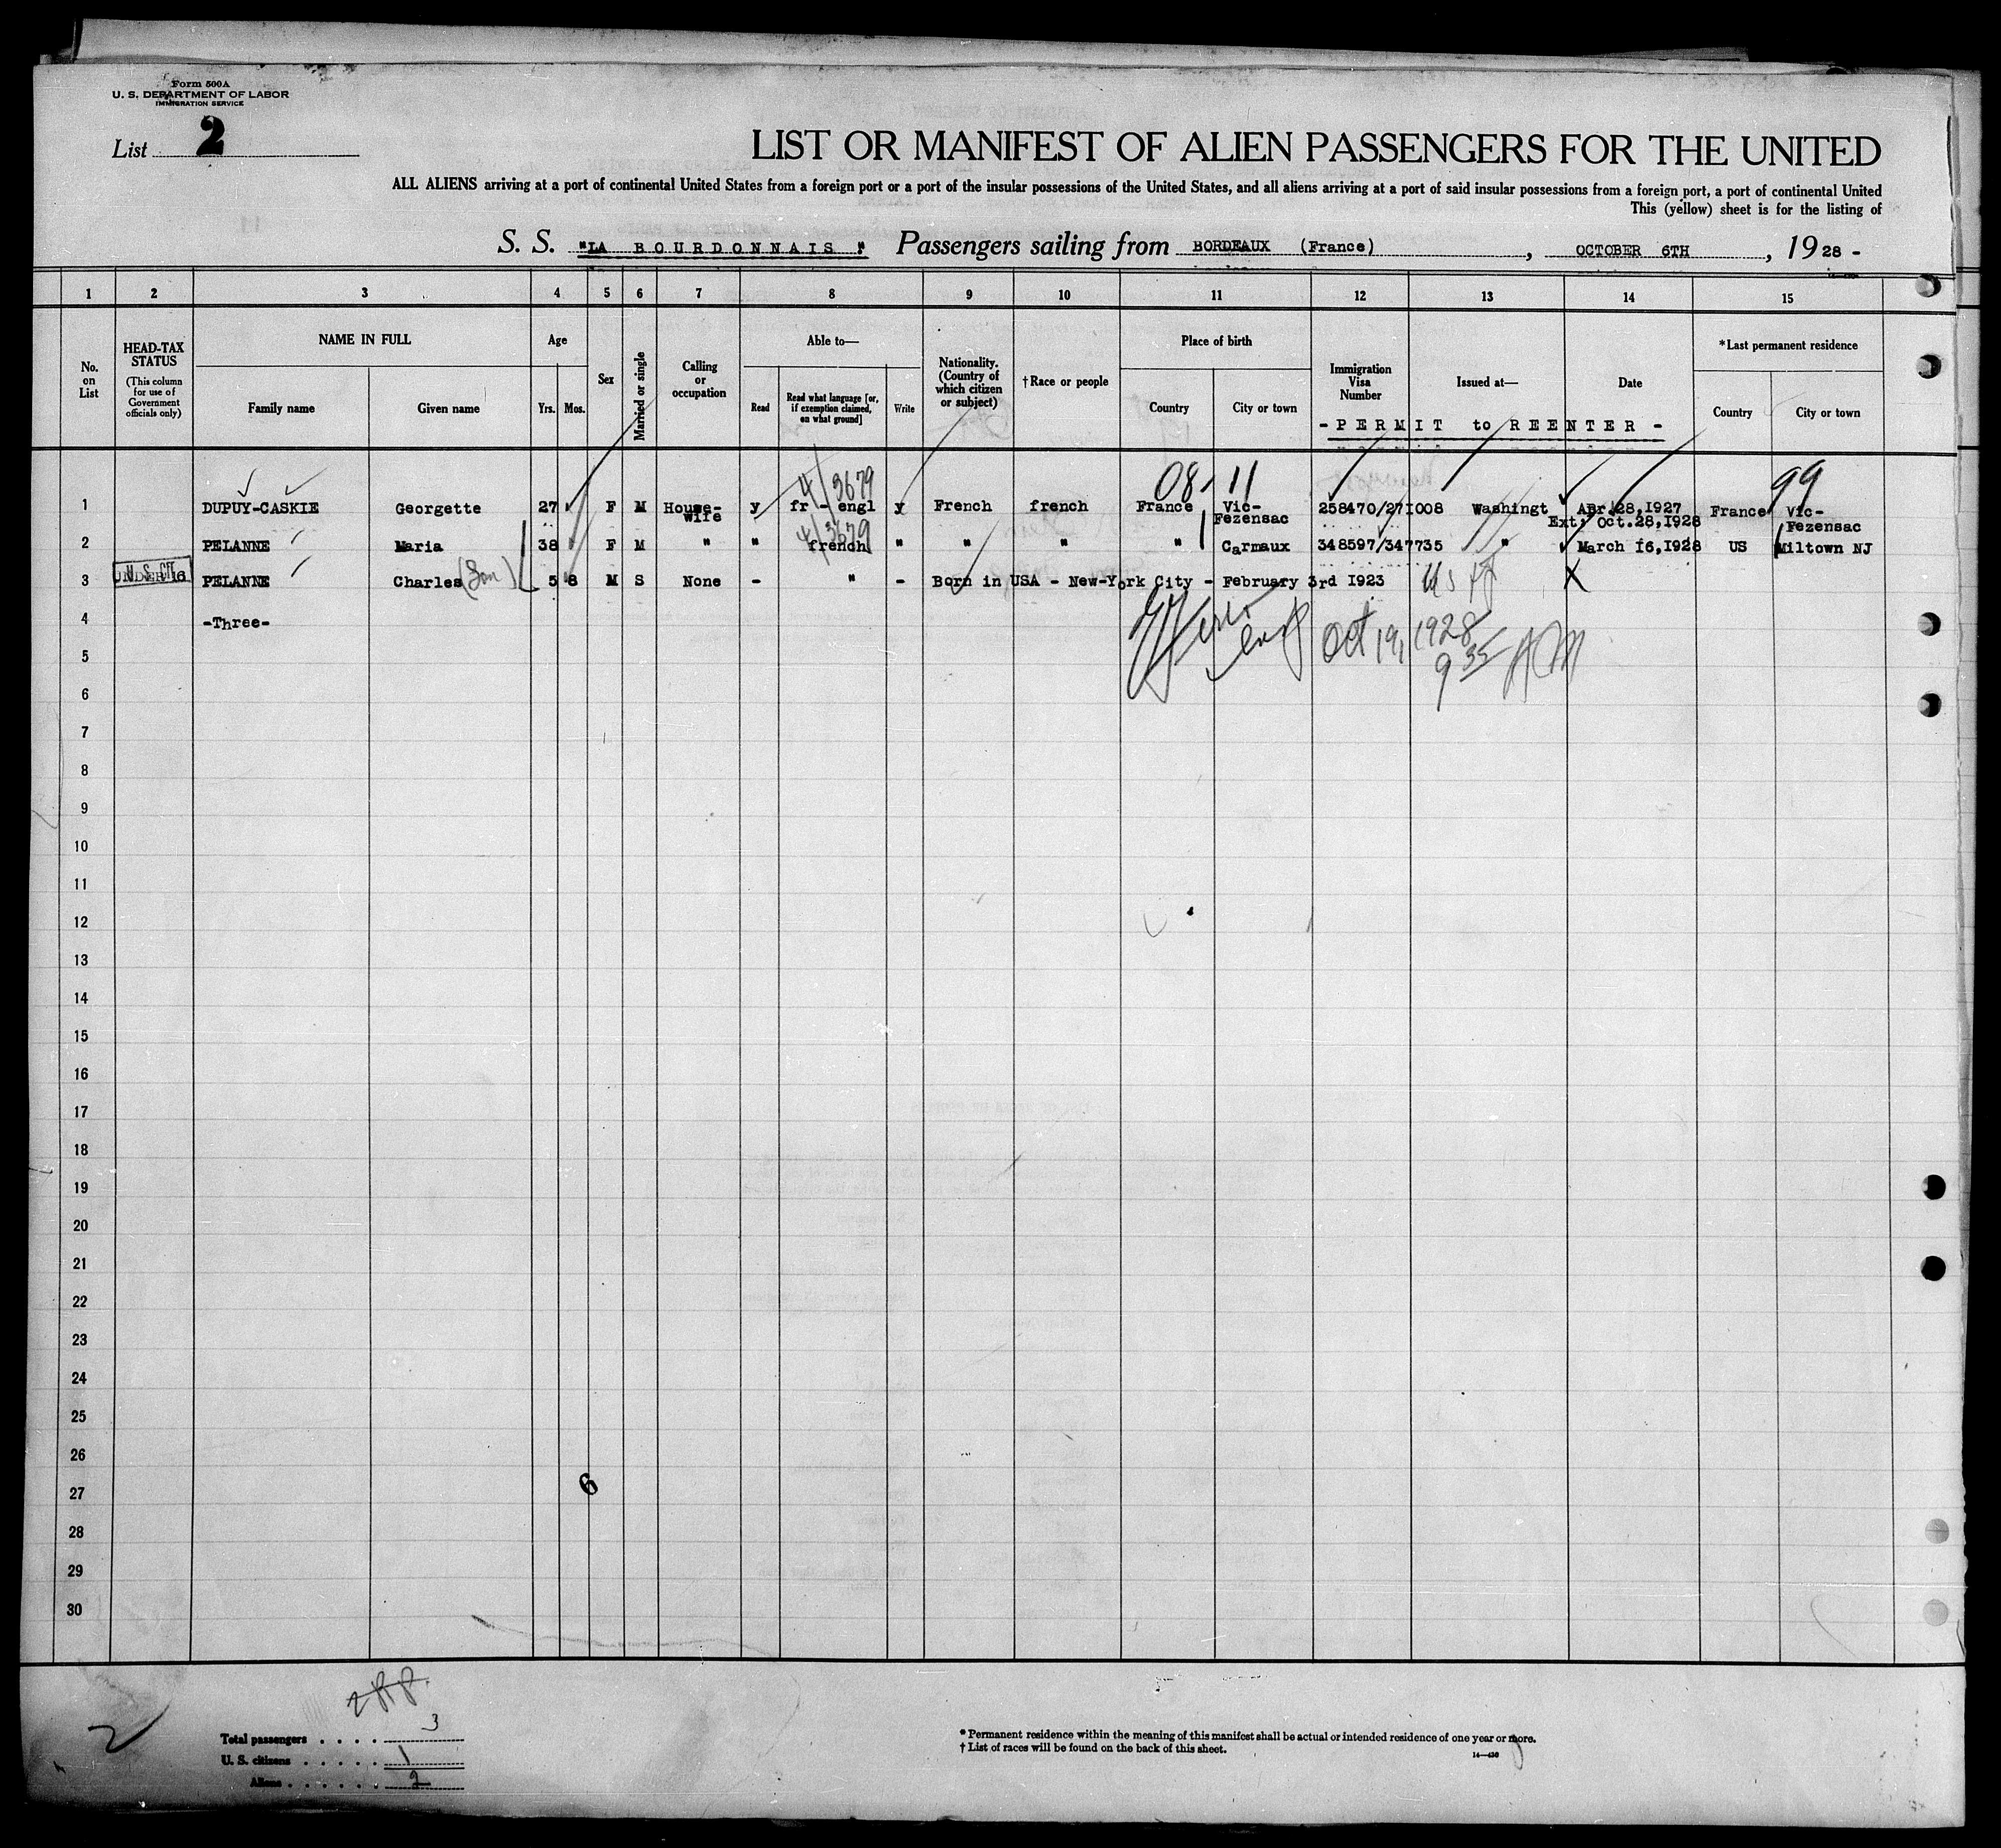 Form 500A
U. S. DEPARTMENT OF LABOR
IMMIGRATION SERVICE
List 2
LIST OR MANIFEST OF ALIEN PASSENGERS FOR THE UNITED
ALL ALIENS arriving at a port of continental United States from a foreign port or a port of the insular possessions of the United States, and all aliens arriving at a port of said insular possessions from a foreign port, a port of continental United
This (yellow) sheet is for the listing of
S. S. "LA BOURDONNAIS" Passengers sailing from BORDEAUX (France), OCTOBER 6TH, 1928 -
1 2 3 4 5 6 7 8 9 10 11 12 13 14 15
No. on List
HEAD-TAX STATUS (This column for use of Government officials only)
NAME IN FULL
Family name Given name
Age
Yrs. Mos.
Sex
Married or single
Calling or occupation
Able to—
Read Read what language [or, if exemption claimed, on what ground] Write
Nationality. (Country of which citizen or subject)
†Race or people
Place of birth
Country City or town
Immigration Visa Number
Issued at—
Date
*Last permanent residence
Country City or town
-PERMIT to REENTER -
4/3679 08- 11 99
1 DUPUY-CASKIE Georgette 27 F M House-wife y fr - engl y French french France Vic-Fezensac 258470/271008 Washingt Apr 28,1927 Ext; Oct.28,1928 France Vic-Fezensac
4/3679
2 PELANNE Maria 38 F M " " french " " " " Carmaux 348597/347735 " March 16,1928 US Miltown NJ
U. S. CIT. UNDER 16
3 PELANNE Charles (Son) 5 8 M S None - " - Born in USA - New-York City - February 3rd 1923 X
4 -Three-
Oct 19, 1928
9 35 AM
5
6
7
8
9
10
11
12
13
14
15
16
17
18
19
20
21
22
23
24
25
26
27
6
28
29
30
2
Total passengers . . . . 3
U. S. citizens . . . . . 1
Aliens . . . . . . 2
* Permanent residence within the meaning of this manifest shall be actual or intended residence of one year or more.
† List of races will be found on the back of this sheet.
14—430